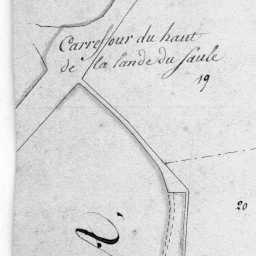 Carrefour du haut
de la lande du Saule
19
20